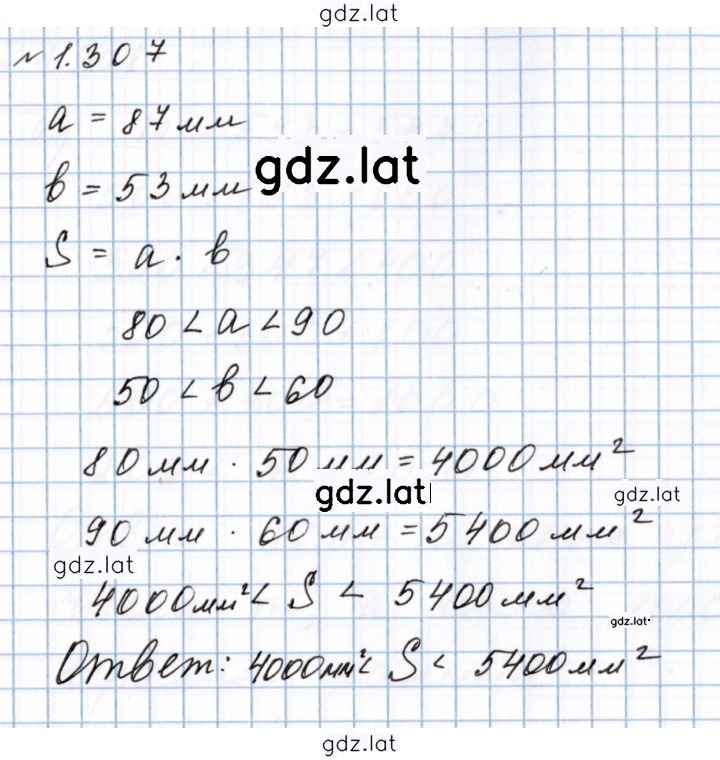 gdz.lat
№ 1.307
a = 87 мм
gdz.lat
в = 53 мм
S = a · в
80 < a < 90
50 < в < 60
80 мм · 50 мм = 4000 мм²
gdz.lat
gdz.lat
90 мм · 60 мм = 5400 мм²
gdz.lat
4000 мм² < S < 5400 мм²
gdz.lat
Ответ: 4000 мм² < S < 5400 мм²
gdz.lat